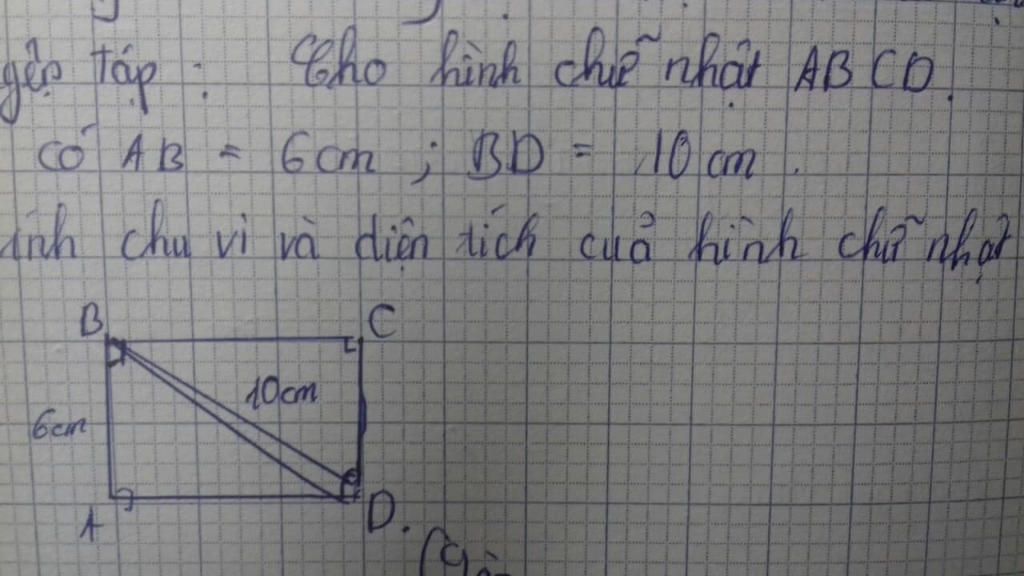 Tập : Cho hình chữ nhật ABCD.
có AB = 6cm ; BD = 10 cm .
ính chu vi và diện tích của hình chữ nhật
B C
10cm
6cm
A D.